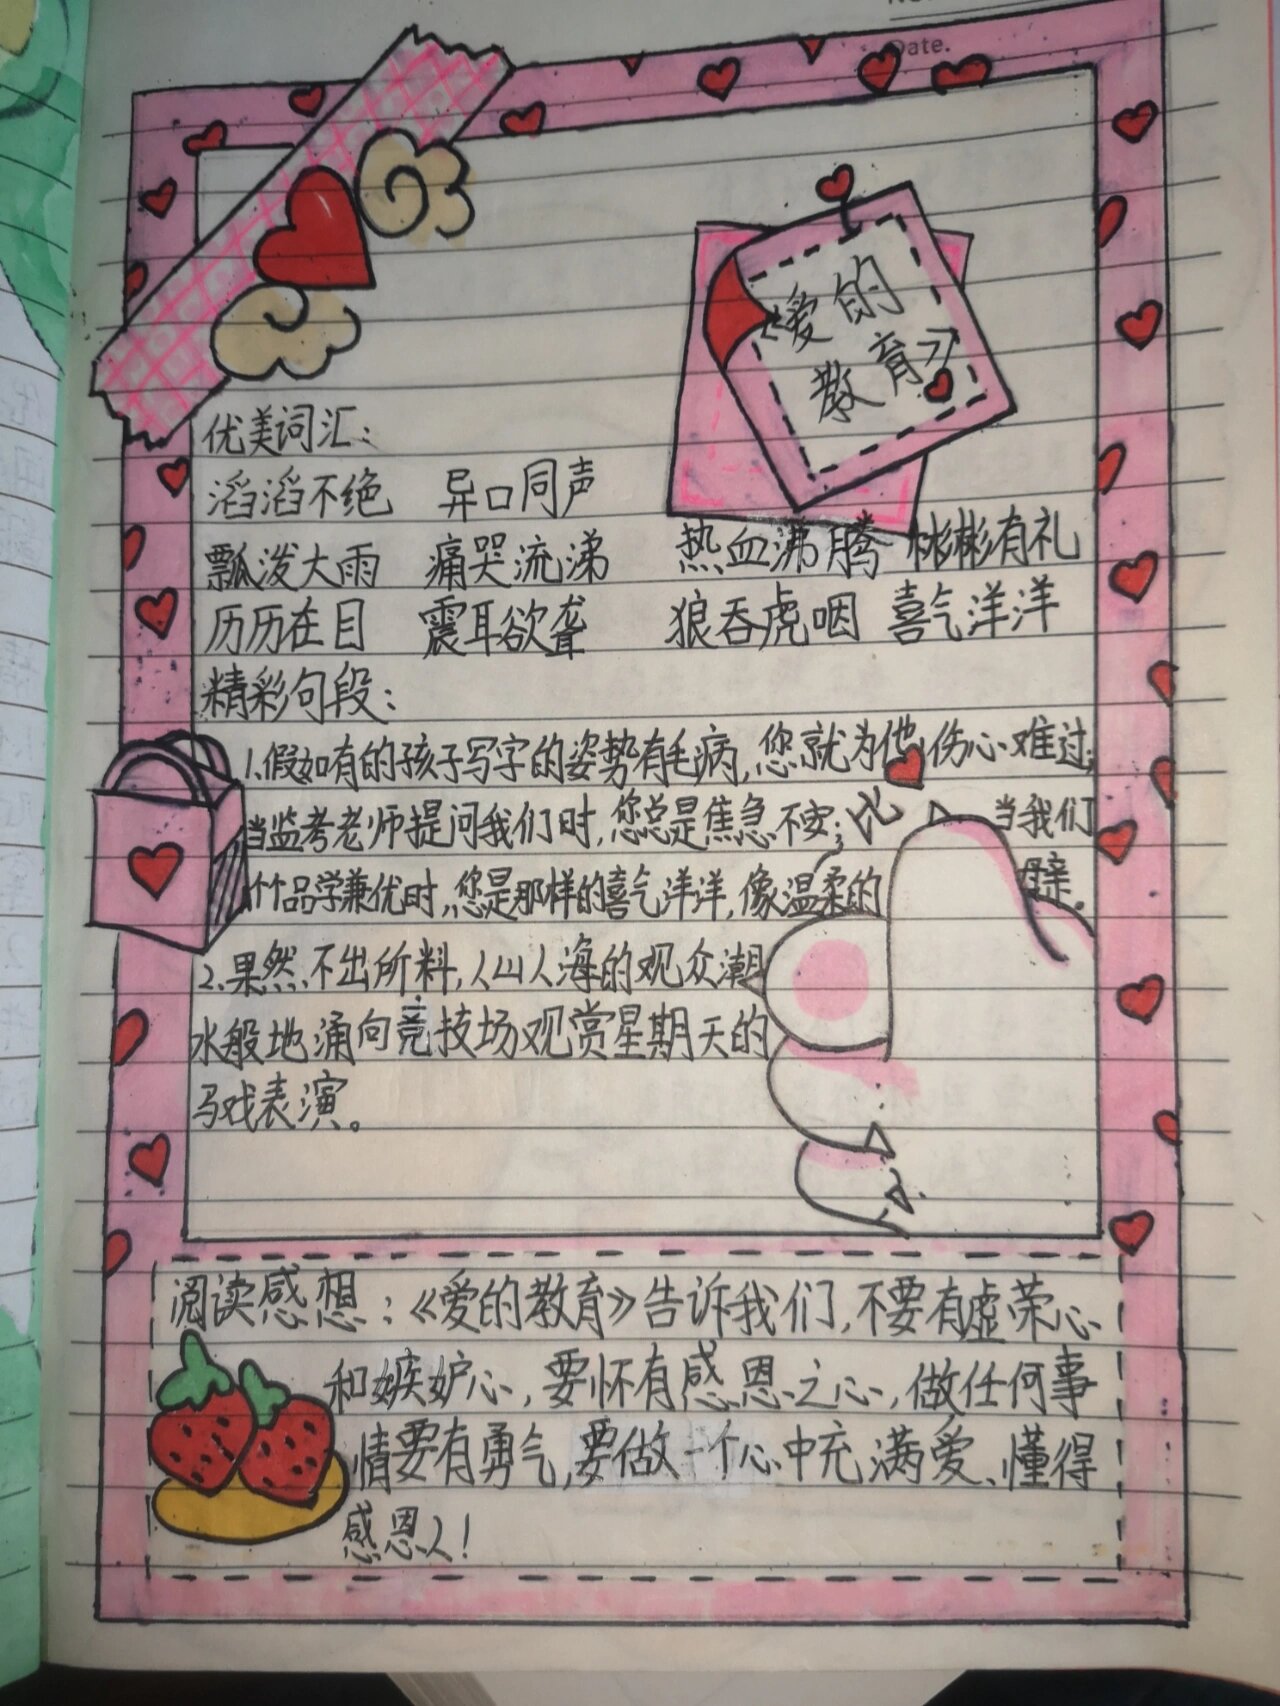 Date.
《爱的
教育》
优美词汇：
滔滔不绝 异口同声
瓢泼大雨 痛哭流涕 热血沸腾 彬彬有礼
历历在目 震耳欲聋 狼吞虎咽 喜气洋洋
精彩句段：
1.假如有的孩子写字的姿势有毛病,您就为他伤心难过;
当监考老师提问我们时,您总是焦急不安; 当我们
个个品学兼优时,您是那样的喜气洋洋,像温柔的 母亲。
2.果然不出所料,人山人海的观众潮
水般地涌向竞技场观赏星期天的
马戏表演。
阅读感想：《爱的教育》告诉我们,不要有虚荣心
和嫉妒心,要怀有感恩之心,做任何事
情要有勇气,要做一个心中充满爱、懂得
感恩人！